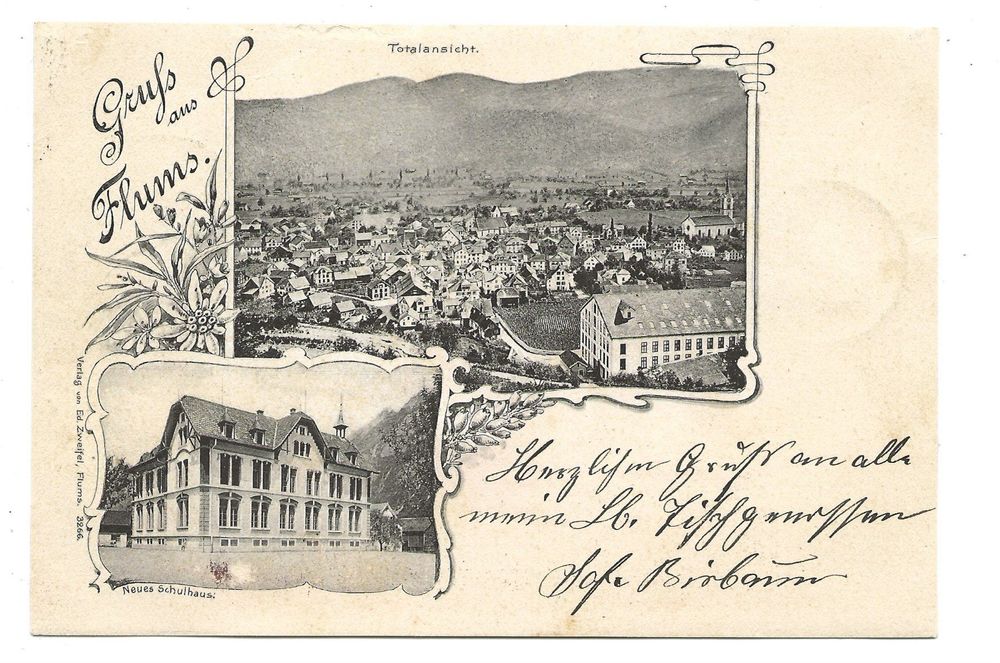 Totalansicht.
Gruß
aus
Flums.
Verlag von Ed. Zweifel, Flums. 3266.
Neues Schulhaus.
Herzlichen Gruß an alle
meine Lb. Tischgenossen
Birbaum